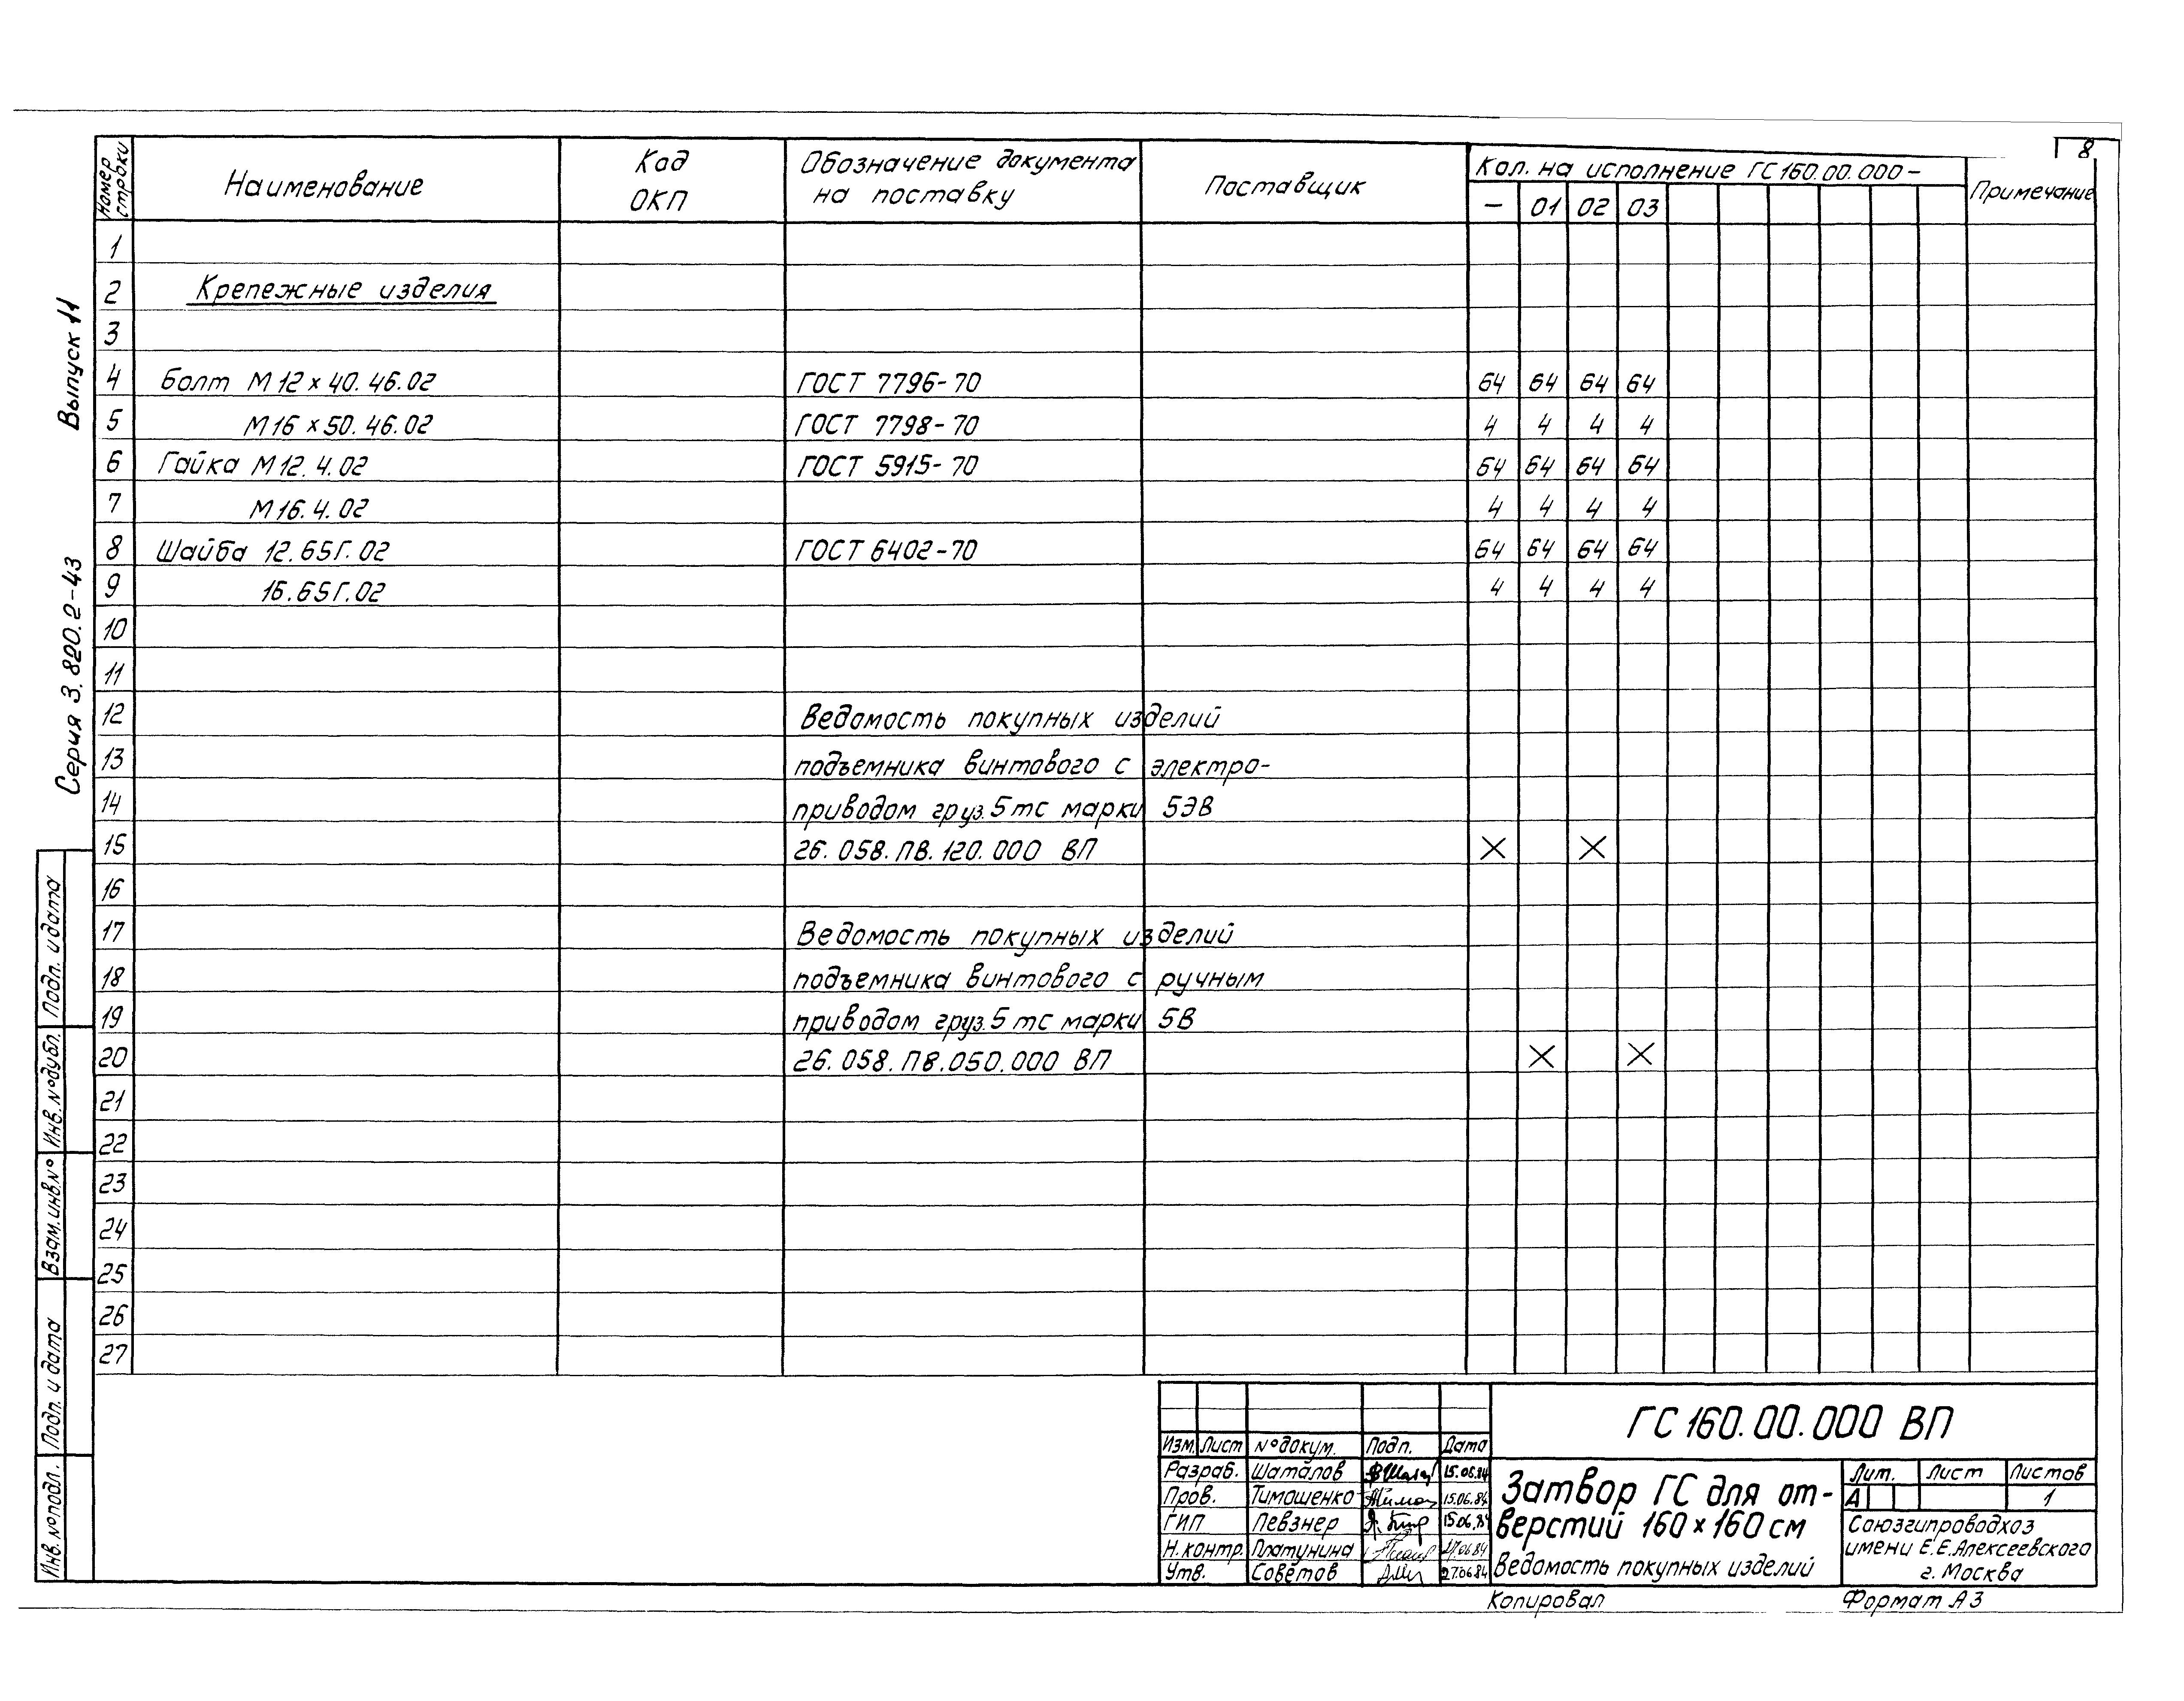 8
Номер строки
Наименование
Код ОКП
Обозначение документа на поставку
Поставщик
Кол. на исполнение ГС160.00.000-
Примечание
- 01 02 03
1
2 Крепежные изделия
3
4 Болт М12×40.46.02 ГОСТ 7796-70 64 64 64 64
5 М16×50.46.02 ГОСТ 7798-70 4 4 4 4
6 Гайка М12.4.02 ГОСТ 5915-70 64 64 64 64
7 М16.4.02 4 4 4 4
8 Шайба 12.65Г.02 ГОСТ 6402-70 64 64 64 64
9 16.65Г.02 4 4 4 4
10
11
12 Ведомость покупных изделий
13 подъемника винтового с электро-
14 приводом груз.5тс марки 5ЭВ
15 26.058.ПВ.120.000 ВП × ×
16
17 Ведомость покупных изделий
18 подъемника винтового с ручным
19 приводом груз.5тс марки 5В
20 26.058.ПВ.050.000 ВП × ×
21
22
23
24
25
26
27
Выпуск 11
Серия 3.820.2-43
Подп. и дата
Инв.№дубл.
Взам.инв.№
Подп. и дата
Инв.№подл.
ГС160.00.000 ВП
Изм. Лист №докум. Подп. Дата
Разраб. Шаталов 15.06.84
Пров. Тимошенко 15.06.84
ГИП Певзнер 15.06.84
Н.контр. Платунина 27.06.84
Утв. Советов 27.06.84
Затвор ГС для от-
верстий 160×160см
Ведомость покупных изделий
Лит. Лист Листов
А 1
Союзгипроводхоз
имени Е.Е.Алексеевского
г. Москва
Копировал
Формат А3